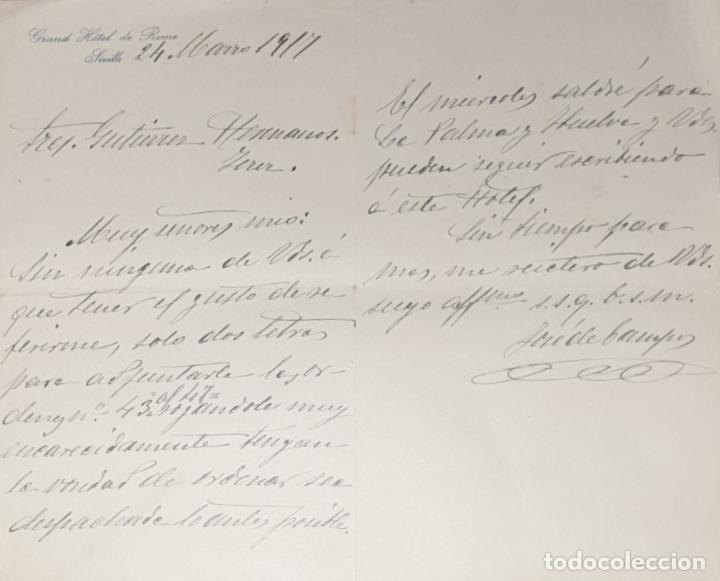 Grand Hôtel de Rome
Seville 24 Marzo 1917
Sres. Gutierrez Hermanos.
Jerez.
Muy señores mio:
Sin ninguna de Vds. á
que tener el gusto de re
ferirme, solo dos letras
para adjuntarle las or-
denes nº 43 al 47=
rogandoles muy
encarecidamente tengan
la vondad de ordenar sea
despachada lo antes posible.
El miercoles saldré para
La Palma y Huelva y Vds.
pueden seguir escribiendo
á este Hotel.
Sin tiempo para
mas, me reitero de Vds.
suyo affmo s.s.q.b.s.m.
José de Campos
todocoleccion